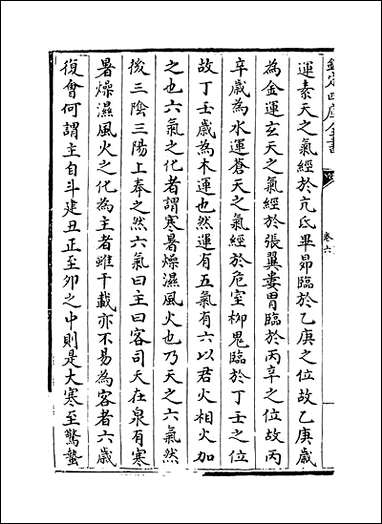 欽定四庫全書
卷六
運素天之氣經於亢氐畢昴臨於乙庚之位故乙庚歲
為金運玄天之氣經於張翼婁胃臨於丙辛之位故丙
辛歲為水運蒼天之氣經於危室柳鬼臨於丁壬之位
故丁壬歲為木運也然運有五氣有六以君火相火加
之也六氣之化者謂寒暑燥濕風火也乃天之六氣然
後三陰三陽上奉之然六氣曰主曰客司天在泉有寒
暑燥濕風火之化為主者雖千載亦不易為客者六歲
復會何謂主自斗建丑正至卯之中則是大寒至驚蟄